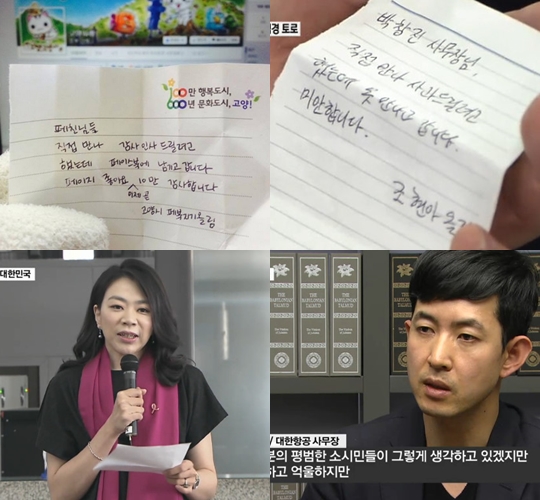 100만 행복도시,
600년 문화도시, 고양!
페친님들
직접 만나 감사인사 드릴려고
했는데 페이스북에 남기고 갑니다
페이지 좋아요 10만 감사합니다
고양시 페북지기 올림
경 토로
박창진 사무장님,
직접 만나 사과드릴려고
했는데 못 만나고 갑니다.
미안합니다.
조현아 올림
대한민국
THE BABYLONIAN TALMUD
THE BABYLONIAN TALMUD
THE BABYLONIAN TALMUD
/ 대한항공 사무장
분의 평범한 소시민들이 그렇게 생각하고 있겠지만
하고 억울하지만